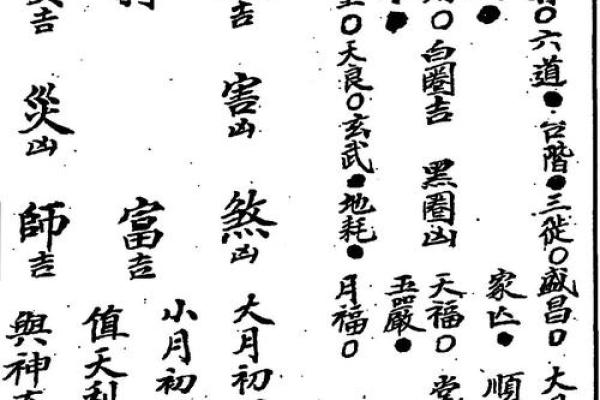 ●六道●台階●三徙○盛昌○大月
● 家亡●順
○白圈吉 黑圈凶 天福○堂
● 玉嚴●
○天良○玄武●地耗● 月福○
吉 害凶 煞凶 大月初
富吉 小月初
值天利
吉 災凶 師吉 與神